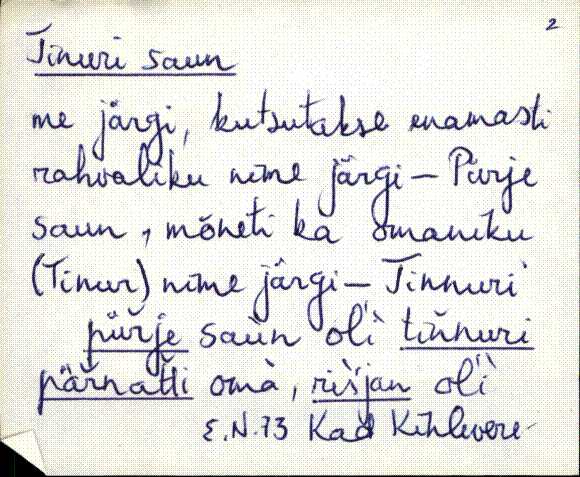 2
Tinuri saun
me järgi, kutsutakse enamasti
rahvaliku nime järgi – Pürje
saun, mõneti ka omaniku
(Tinur) nime järgi – Tinnuri
püŕje saùn ol'ì tińnuri
päŕnatti omà, ris'jan ol'ì
E.N.73 Kad Kihlevere